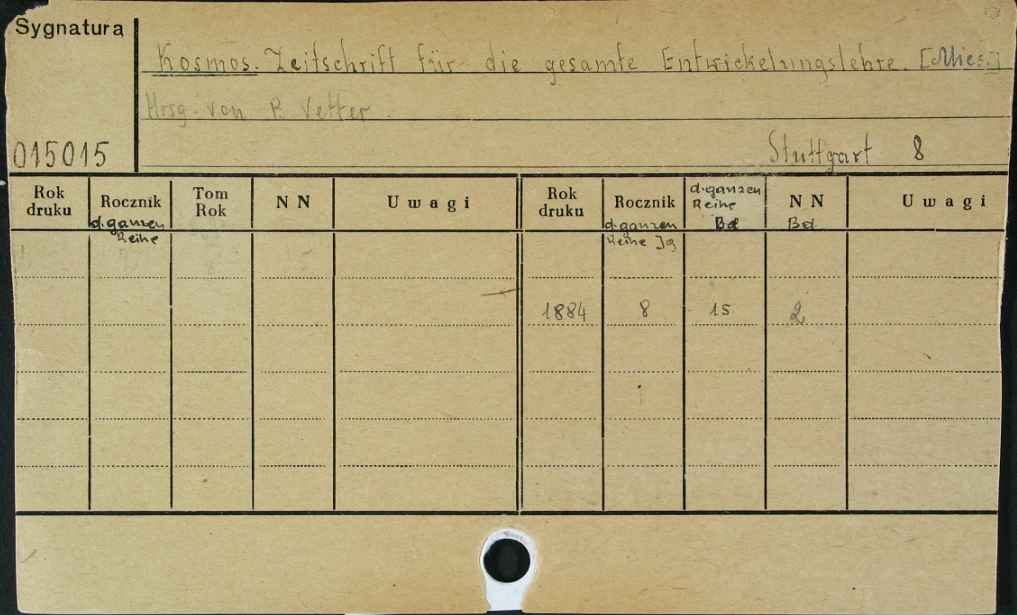 Sygnatura
Kosmos. Zeitschrift für die gesamte Entwickelungslehre. [Mies.]
Hrsg. von B. Vetter
015015
Stuttgart 8
Rok druku Rocznik Tom Rok NN Uwagi Rok druku Rocznik d. ganzen Reihe Bd NN Uwagi
d. ganzen Reihe d. ganzen Reihe Jg Bd
1884 8 15 2